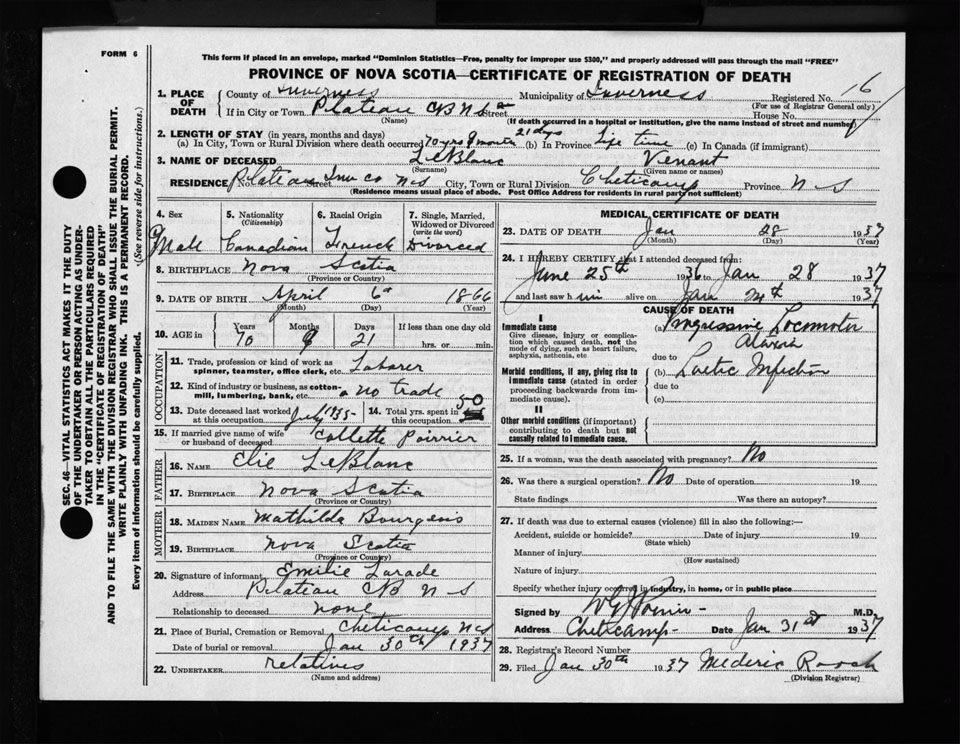 FORM 6
This form if placed in an envelope, marked "Dominion Statistics—Free, penalty for improper use $300," and properly addressed will pass through the mail "FREE"
PROVINCE OF NOVA SCOTIA—CERTIFICATE OF REGISTRATION OF DEATH
1. PLACE OF DEATH
County of Inverness Municipality of Inverness Registered No. 16
(For use of Registrar General only)
If in City or Town Plateau CB N S Street House No.
(Name) (If death occurred in a hospital or institution, give the name instead of street and number)
2. LENGTH OF STAY (in years, months and days)
(a) In City, Town or Rural Division where death occurred 70 yrs 9 months 21 days (b) In Province Life time (c) In Canada (if immigrant)
3. NAME OF DECEASED LeBlanc Venant
(Surname) (Given name or names)
RESIDENCE No. Plateau Street Inv co N S City, Town or Rural Division Cheticamp Province N S
(Residence means usual place of abode. Post Office Address for residents in rural parts not sufficient)
4. Sex Male
5. Nationality (Citizenship) Canadian
6. Racial Origin French
7. Single, Married, Widowed or Divorced (write the word) Divorced
8. BIRTHPLACE Nova Scotia
(Province or Country)
9. DATE OF BIRTH April 6th 1866
(Month) (Day) (Year)
10. AGE in Years 70 Months 9 Days 21 If less than one day old hrs. or min.
OCCUPATION
11. Trade, profession or kind of work as spinner, teamster, office clerk, etc. Laborer
12. Kind of industry or business, as cotton-mill, lumbering, bank, etc. no trade
13. Date deceased last worked at this occupation July 1935
14. Total yrs. spent in this occupation 50
15. If married give name of wife or husband of deceased Collette Poirrier
FATHER
16. NAME Elie LeBlanc
17. BIRTHPLACE Nova Scotia
(Province or Country)
MOTHER
18. MAIDEN NAME Mathilda Bourgeois
19. BIRTHPLACE Nova Scotia
(Province or Country)
20. Signature of informant Emilie Larade
Address Plateau CB N S
Relationship to deceased none
21. Place of Burial, Cremation or Removal Cheticamp N S
Date of burial or removal Jan 30th 1937
22. UNDERTAKER relatives
(Name and address)
MEDICAL CERTIFICATE OF DEATH
23. DATE OF DEATH Jan 28 1937
(Month) (Day) (Year)
24. I HEREBY CERTIFY that I attended deceased from:
June 25th 1936 to Jan 28 1937
and last saw him alive on Jan 1937
CAUSE OF DEATH
I
Immediate cause
Give disease, injury or complication which caused death, not the mode of dying, such as heart failure, asphyxia, asthenia, etc
(a) Progressive Locomotor Ataxia
due to
Morbid conditions, if any, giving rise to immediate cause (stated in order proceeding backwards from immediate cause).
(b) Luetic Infection
due to
(c)
II
Other morbid conditions (if important) contributing to death but not causally related to immediate cause.
25. If a woman, was the death associated with pregnancy? No
26. Was there a surgical operation? No Date of operation 19
State findings Was there an autopsy?
27. If death was due to external causes (violence) fill in also the following:—
Accident, suicide or homicide? Date of injury 19
(State which)
Manner of injury
(How sustained)
Nature of injury
Specify whether injury occurred in industry, in home, or in public place
Signed by M.D.
Address Cheticamp Date Jan 31st 1937
28. Registrar's Record Number
29. Filed Jan 30th 1937 Mederic Roach
(Division Registrar)
SEC. 46—VITAL STATISTICS ACT MAKES IT THE DUTY
OF THE UNDERTAKER OR PERSON ACTING AS UNDER-
TAKER TO OBTAIN ALL THE PARTICULARS REQUIRED
IN THE "CERTIFICATE OF REGISTRATION OF DEATH"
AND TO FILE THE SAME WITH THE DIVISION REGISTRAR WHO SHALL ISSUE THE BURIAL PERMIT.
WRITE PLAINLY WITH UNFADING INK. THIS IS A PERMANENT RECORD.
Every item of information should be carefully supplied. (See reverse side for instructions.)